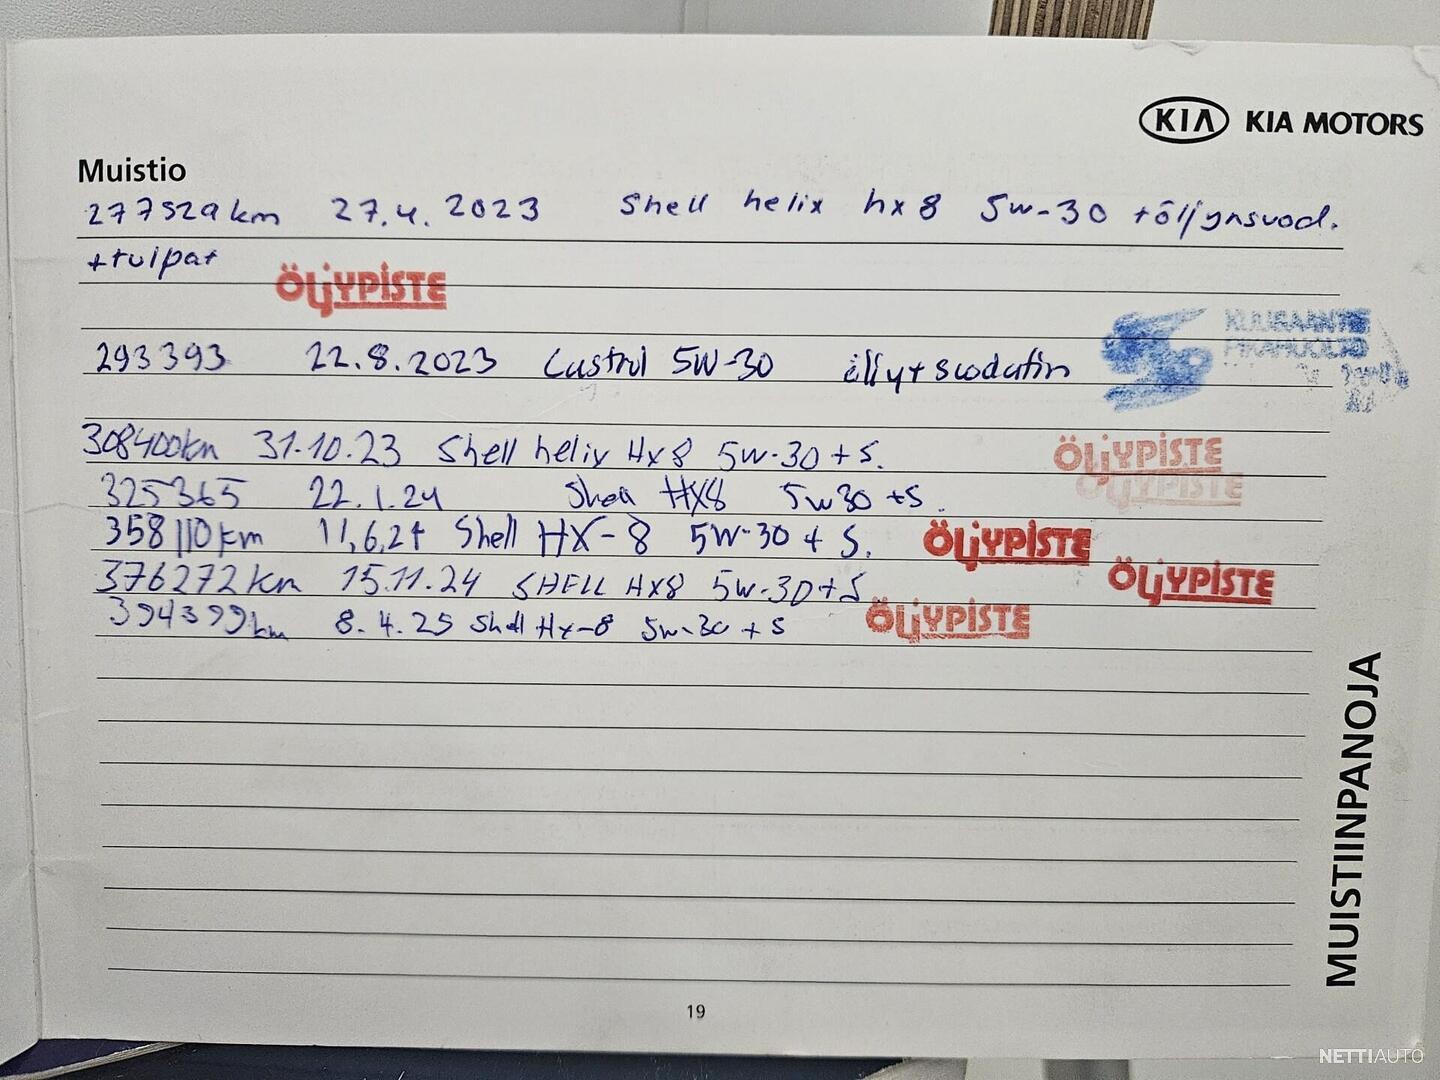 KIA KIA MOTORS
Muistio
277529km 27.4.2023 Shell helix hx8 5w-30 +öljynsuod.
+tulpat
ÖLJYPISTE
293393 22.8.2023 Castrol 5W-30 öljyt suodatin
308400km 31.10.23 Shell helix Hx8 5w-30 + S. ÖLJYPISTE
325365 22.1.24 Shell HX8 5w30 +S.
358110km 11,6,24 Shell HX-8 5W-30 + S. ÖLJYPISTE
376272km 15.11.24 SHELL HX8 5w-30+S ÖLJYPISTE
394399km 8.4.25 Shell Hx-8 5w-30 + S ÖLJYPISTE
MUISTIINPANOJA
19
NETTIAUTO